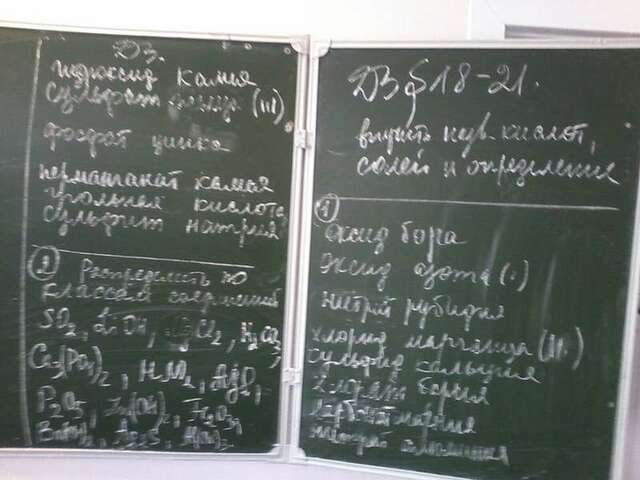 ДЗ.
гидроксид калия
сульфат (III)
фосфат цинка
перманганат калия
угольная кислота
сульфит натрия
2 Распределить по
классам соединений
SO2, LiOH, Cl2, H2CO3,
Ca3(PO4)2, HNO2, AgI,
P2O5, Zn(OH)2, Fe2O3,
Ba(OH)2,
ДЗ § 18-21.
выучить назв. кислот,
солей и определение
1
оксид бора
оксид азота (I)
нитрид рубидия
хлорид марганца (II)
сульфид кальция
бария
карбонат магния
нитрат алюминия